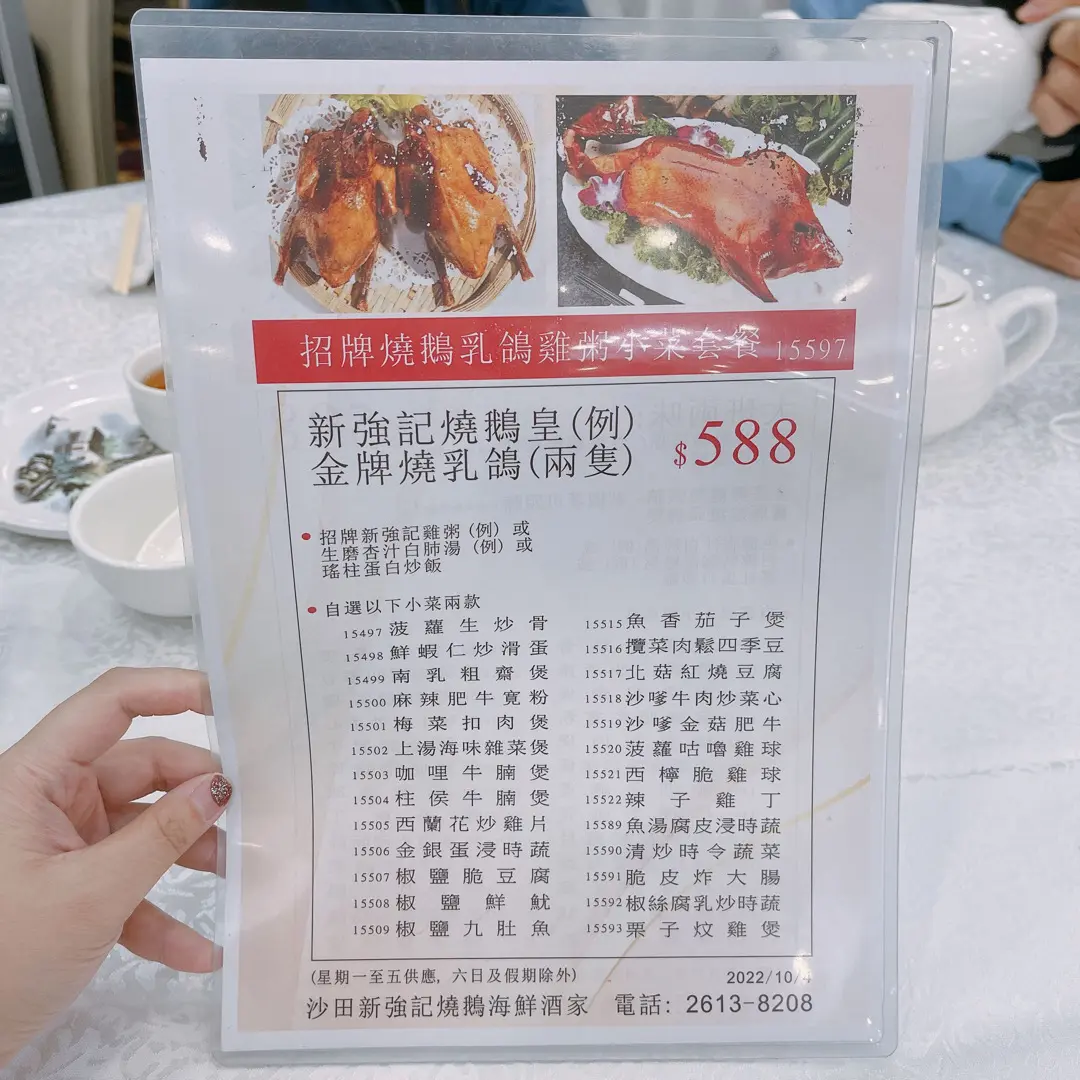 招牌燒鵝乳鴿雞粥小菜套餐 15597
新強記燒鵝皇(例)
金牌燒乳鴿(兩隻)
$588
• 招牌新強記雞粥 (例) 或
生磨杏汁白肺湯 (例) 或
瑤柱蛋白炒飯
• 自選以下小菜兩款
15497 菠蘿生炒骨
15498 鮮蝦仁炒滑蛋
15499 南乳粗齋煲
15500 麻辣肥牛寬粉
15501 梅菜扣肉煲
15502 上湯海味雜菜煲
15503 咖哩牛腩煲
15504 柱侯牛腩煲
15505 西蘭花炒雞片
15506 金銀蛋浸時蔬
15507 椒鹽脆豆腐
15508 椒鹽鮮魷
15509 椒鹽九肚魚
15515 魚香茄子煲
15516 欖菜肉鬆四季豆
15517 北菇紅燒豆腐
15518 沙嗲牛肉炒菜心
15519 沙嗲金菇肥牛
15520 菠蘿咕嚕雞球
15521 西檸脆雞球
15522 辣子雞丁
15589 魚湯腐皮浸時蔬
15590 清炒時令蔬菜
15591 脆皮炸大腸
15592 椒絲腐乳炒時蔬
15593 栗子炆雞煲
(星期一至五供應, 六日及假期除外)
2022/10/4
沙田新強記燒鵝海鮮酒家 電話: 2613-8208